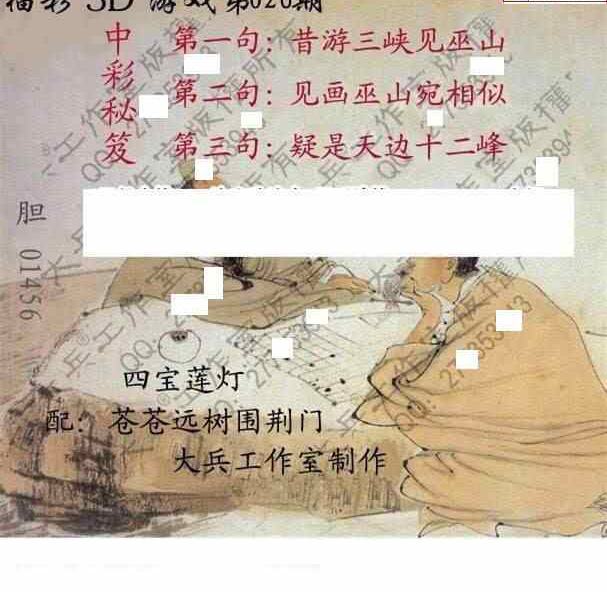 福彩3D游戏第020期
中彩秘笈
第一句：昔游三峡见巫山
第二句：见画巫山宛相似
第三句：疑是天边十二峰
胆 01456
四宝莲灯
配：苍苍远树围荆门
大兵工作室制作